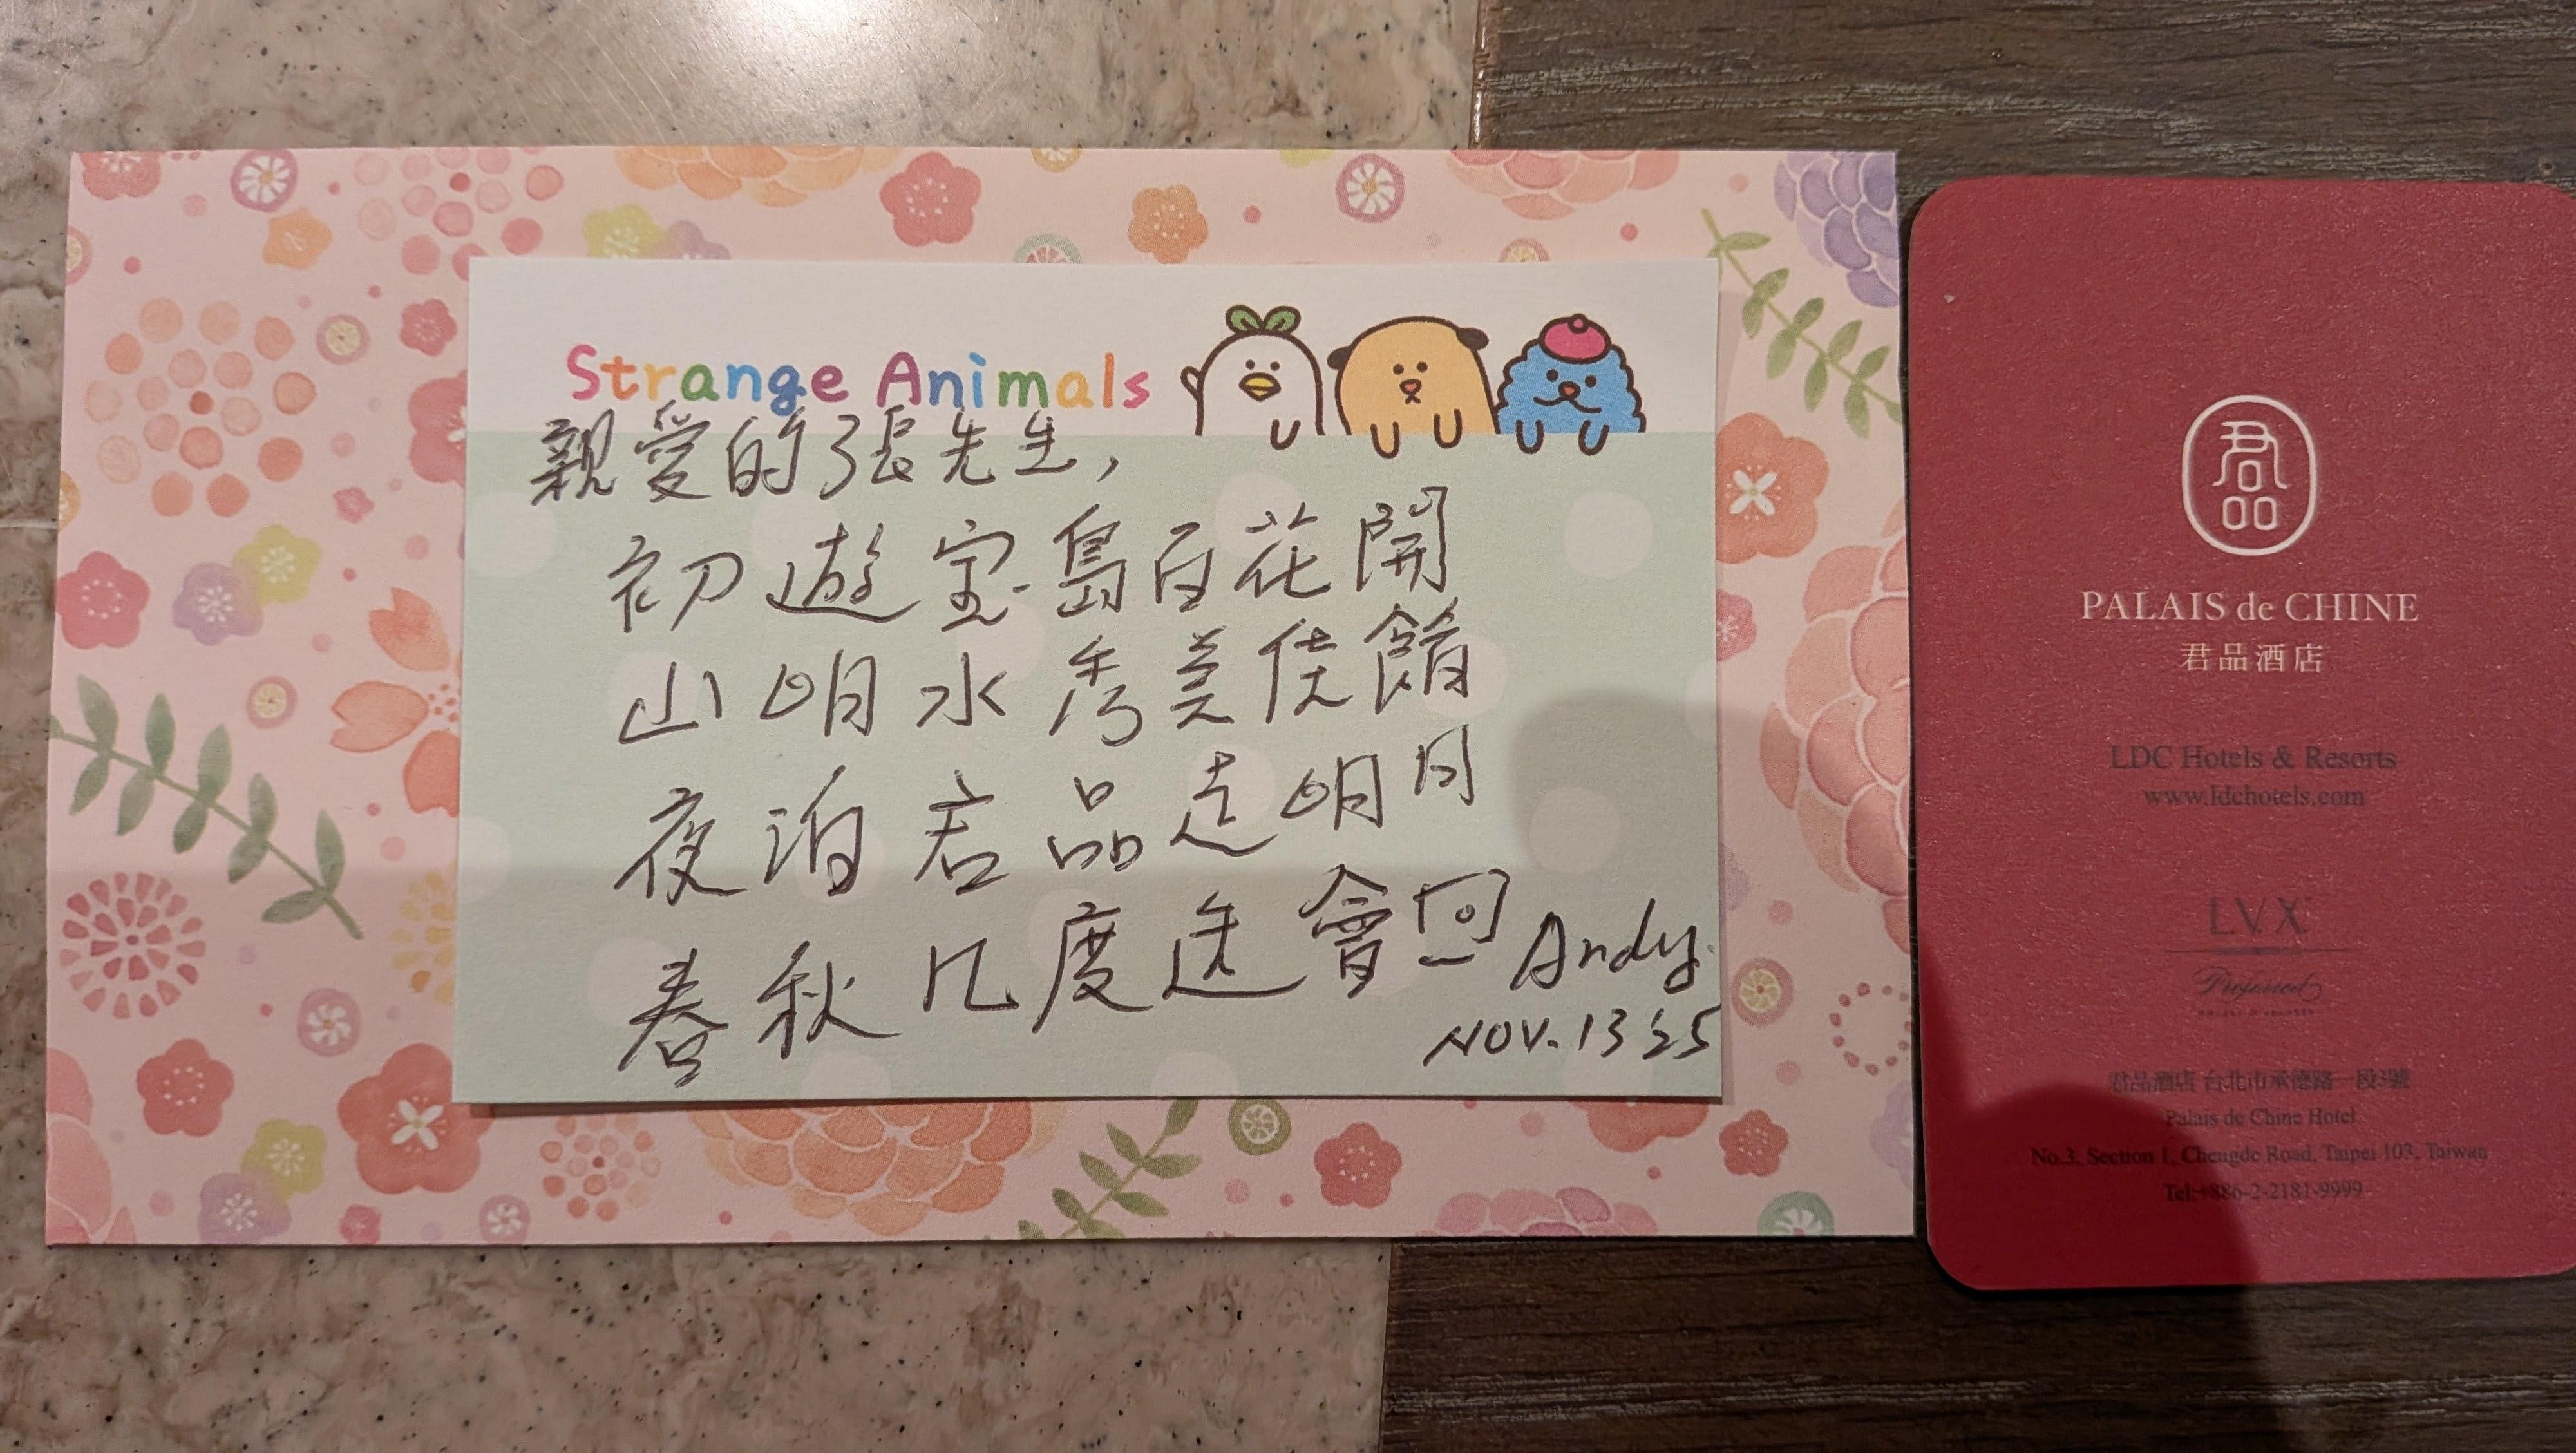 Strange Animals
親愛的張先生,
初遊宝島百花開
山明水秀美佳餚
夜泊君品走明日
春秋几度送會回
Andy.
NOV. 13 '25
君品
PALAIS de CHINE
君品酒店
LDC Hotels & Resorts
www.ldchotels.com
LVX
Preferred
君品酒店 台北市承德路一段3號
Palais de Chine Hotel
No.3, Section 1, Chengde Road, Taipei 103, Taiwan
Tel:+886-2-2181-9999